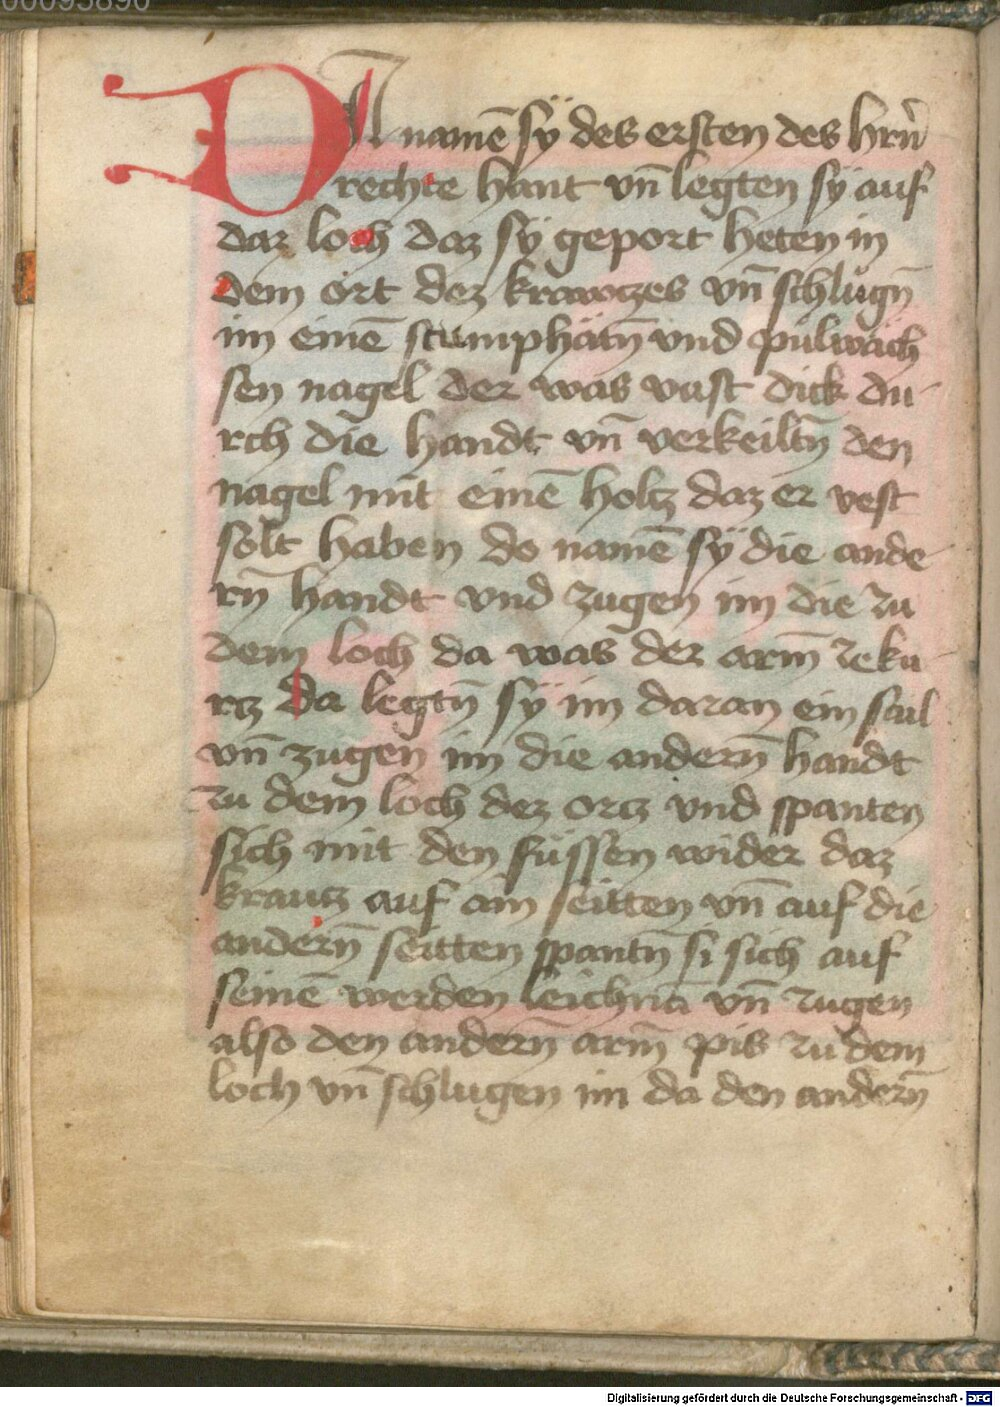 DA namē sy des ersten des hrñ
rechte hant vñ legten sÿ auf
daz loch daz sÿ geport heten in
dem ort dez krawczes vñ schlugñ
im einē stumphätñ vnd pulwäch
sen nagel der was vast dick du-
rch die handt vñ verkeiltñ den
nagel mit einē holtz daz er vest
solt haben do namē sÿ die ande
rñ handt vnd zugen im die zu
dem loch da was der arm̄ zeku-
rcz da legtñ sÿ im daran ein sail
vñ zugen im die anderñ handt
zu dem loch dez orcz vnd spanten
sich mit den füssen wider daz
krautz auf ain seitten vñ auf die
anderñ seitten spantñ si sich auf
seinē werden leichnā vñ zugen
also den anderñ arm̄ pis zu dem
loch vñ schlugen im da den anderñ
Digitalisierung gefördert durch die Deutsche Forschungsgemeinschaft - DFG